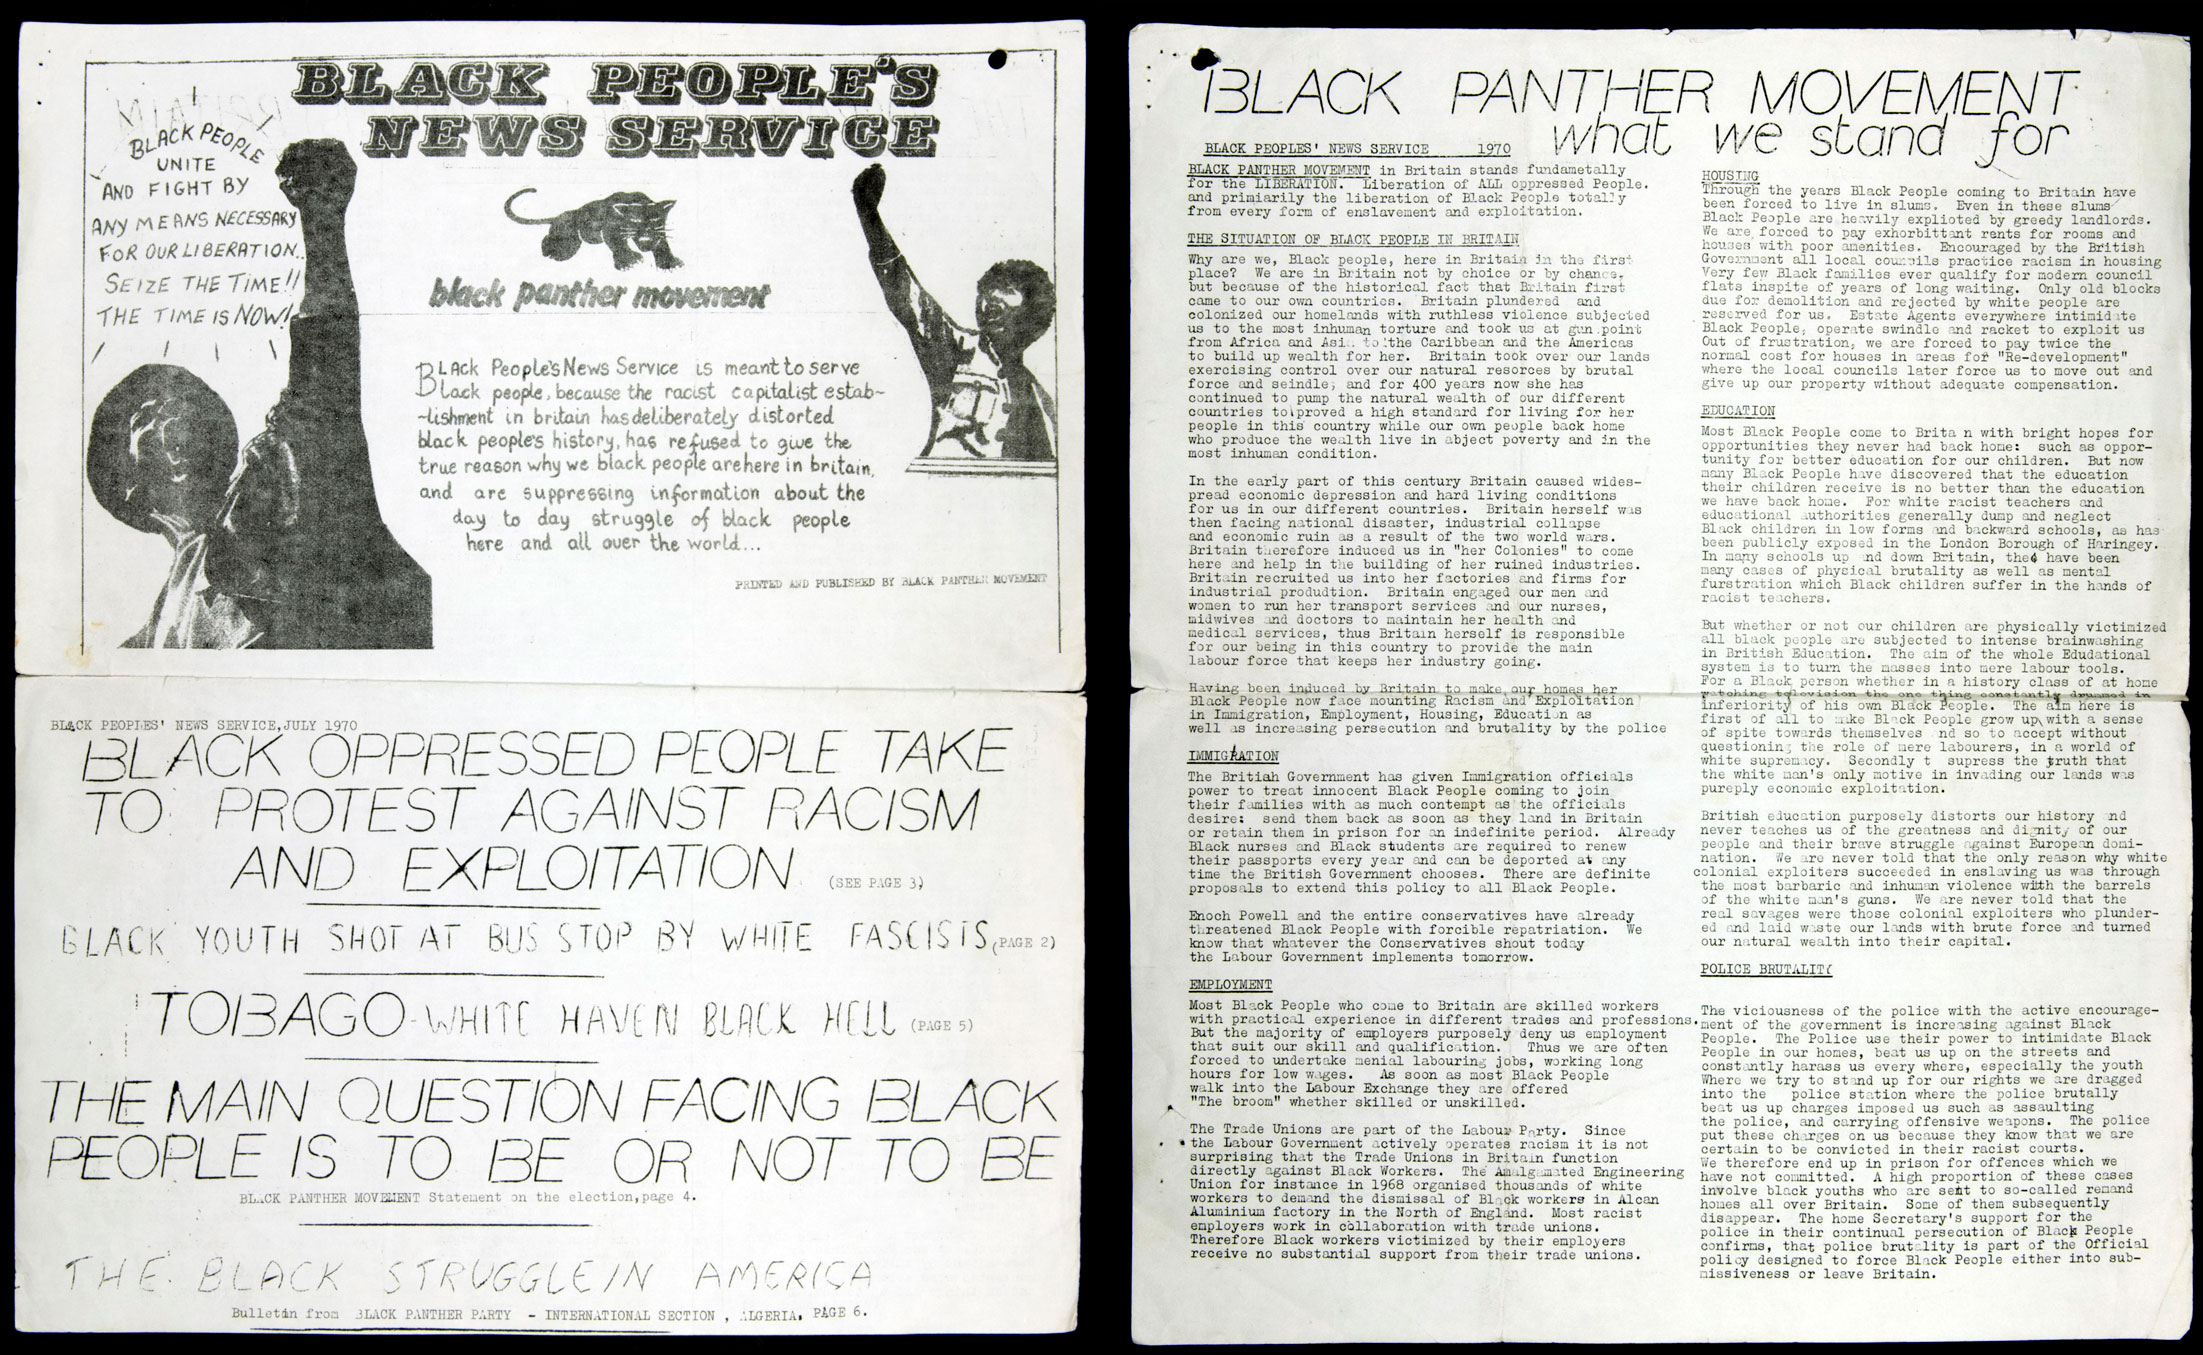 BLACK PEOPLE'S
NEWS SERVICE
BLACK PEOPLE
UNITE
AND FIGHT BY
ANY MEANS NECESSARY
FOR OUR LIBERATION..
SEIZE THE TIME!!
THE TIME IS NOW!
black panther movement
BLAck People's News Service is meant to serve
black people, because the racist capitalist estab-
-lishment in britain has deliberately distorted
black people's history, has refused to give the
true reason why we black people are here in britain,
and are suppressing information about the
day to day struggle of black people
here and all over the world...
PRINTED AND PUBLISHED BY BLACK PANTHER MOVEMENT
BLACK PEOPLES' NEWS SERVICE, JULY 1970
BLACK OPPRESSED PEOPLE TAKE
TO PROTEST AGAINST RACISM
AND EXPLOITATION (SEE PAGE 3)
BLACK YOUTH SHOT AT BUS STOP BY WHITE FASCISTS (PAGE 2)
TOBAGO - WHITE HAVEN BLACK HELL (PAGE 5)
THE MAIN QUESTION FACING BLACK
PEOPLE IS TO BE OR NOT TO BE
BLACK PANTHER MOVEMENT Statement on the election, page 4.
THE BLACK STRUGGLE IN AMERICA
Bulletin from BLACK PANTHER PARTY - INTERNATIONAL SECTION , ALGERIA, PAGE 6.
BLACK PANTHER MOVEMENT
what we stand for
BLACK PEOPLES' NEWS SERVICE 1970
BLACK PANTHER MOVEMENT in Britain stands fundametally
for the LIBERATION. Liberation of ALL oppressed People.
and primiarily the liberation of Black People totally
from every form of enslavement and exploitation.
THE SITUATION OF BLACK PEOPLE IN BRITAIN
Why are we, Black people, here in Britain in the first
place? We are in Britain not by choice or by chance,
but because of the historical fact that Britain first
came to our own countries. Britain plundered and
colonized our homelands with ruthless violence subjected
us to the most inhuman torture and took us at gun point
from Africa and Asia to the Caribbean and the Americas
to build up wealth for her. Britain took over our lands
exercising control over our natural resorces by brutal
force and seindle, and for 400 years now she has
continued to pump the natural wealth of our different
countries to proved a high standard for living for her
people in this country while our own people back home
who produce the wealth live in abject poverty and in the
most inhuman condition.
In the early part of this century Britain caused wides-
pread economic depression and hard living conditions
for us in our different countries. Britain herself was
then facing national disaster, industrial collapse
and economic ruin as a result of the two world wars.
Britain therefore induced us in "her Colonies" to come
here and help in the building of her ruined industries.
Britain recruited us into her factories and firms for
industrial prodution. Britain engaged our men and
women to run her transport services and our nurses,
midwives and doctors to maintain her health and
medical services, thus Britain herself is responsible
for our being in this country to provide the main
labour force that keeps her industry going.
Having been induced by Britain to make our homes her
Black People now face mounting Racism and Exploitation
in Immigration, Employment, Housing, Education as
well as increasing persecution and brutality by the police
IMMIGRATION
The Britiah Government has given Immigration officials
power to treat innocent Black People coming to join
their families with as much contempt as the officials
desire: send them back as soon as they land in Britain
or retain them in prison for an indefinite period. Already
Black nurses and Black students are required to renew
their passports every year and can be deported at any
time the British Government chooses. There are definite
proposals to extend this policy to all Black People.
Enoch Powell and the entire conservatives have already
threatened Black People with forcible repatriation. We
know that whatever the Conservatives shout today
the Labour Government implements tomorrow.
EMPLOYMENT
Most Black People who come to Britain are skilled workers
with practical experience in different trades and professions.
But the majority of employers purposely deny us employment
that suit our skill and qualification. Thus we are often
forced to undertake menial labouring jobs, working long
hours for low wages. As soon as most Black People
walk into the Labour Exchange they are offered
"The broom" whether skilled or unskilled.
The Trade Unions are part of the Labour Party. Since
the Labour Government actively operates racism it is not
surprising that the Trade Unions in Britain function
directly against Black Workers. The Amalgamated Engineering
Union for instance in 1968 organised thousands of white
workers to demand the dismissal of Black workers in Alcan
Aluminium factory in the North of England. Most racist
employers work in collaboration with trade unions.
Therefore Black workers victimized by their employers
receive no substantial support from their trade unions.
HOUSING
Through the years Black People coming to Britain have
been forced to live in slums. Even in these slums
Black People are heavily explioted by greedy landlords.
We are forced to pay exhorbittant rents for rooms and
houses with poor amenities. Encouraged by the British
Government all local councils practice racism in housing
Very few Black families ever qualify for modern council
flats inspite of years of long waiting. Only old blocks
due for demolition and rejected by white people are
reserved for us. Estate Agents everywhere intimidate
Black People, operate swindle and racket to exploit us
Out of frustration, we are forced to pay twice the
normal cost for houses in areas for "Re-development"
where the local councils later force us to move out and
give up our property without adequate compensation.
EDUCATION
Most Black People come to Brita n with bright hopes for
opportunities they never had back home: such as oppor-
tunity for better education for our children. But now
many Black People have discovered that the education
their children receive is no better than the education
we have back home. For white racist teachers and
educational authorities generally dump and neglect
Black children in low forms and backward schools, as has
been publicly exposed in the London Borough of Haringey.
In many schools up and down Britain, the4 have been
many cases of physical brutality as well as mental
furstration which Black children suffer in the hands of
racist teachers.
But whether or not our children are physically victimized
all black people are subjected to intense brainwashing
in British Education. The aim of the whole Edudational
system is to turn the masses into mere labour tools.
For a Black person whether in a history class of at home
watching television the one thing constantly drummed in
inferiority of his own Black People. The aim here is
first of all to make Black People grow up with a sense
of spite towards themselves and so to accept without
questioning the role of mere labourers, in a world of
white supremacy. Secondly t supress the truth that
the white man's only motive in invading our lands was
pureply economic exploitation.
British education purposely distorts our history and
never teaches us of the greatness and dignity of our
people and their brave struggle against European domi-
nation. We are never told that the only reason why white
colonial exploiters succeeded in enslaving us was through
the most barbaric and inhuman violence with the barrels
of the white man's guns. We are never told that the
real savages were those colonial exploiters who plunder-
ed and laid waste our lands with brute force and turned
our natural wealth into their capital.
POLICE BRUTALITY
The viciousness of the police with the active encourage-
ment of the government is increasing against Black
People. The Police use their power to intimidate Black
People in our homes, beat us up on the streets and
constantly harass us every where, especially the youth
Where we try to stand up for our rights we are dragged
into the police station where the police brutally
beat us up charges imposed us such as assaulting
the police, and carrying offensive weapons. The police
put these charges on us because they know that we are
certain to be convicted in their racist courts.
We therefore end up in prison for offences which we
have not committed. A high proportion of these cases
involve black youths who are sent to so-called remand
homes all over Britain. Some of them subsequently
disappear. The home Secretary's support for the
police in their continual persecution of Black People
confirms, that police brutality is part of the Official
policy designed to force Black People either into sub-
missiveness or leave Britain.